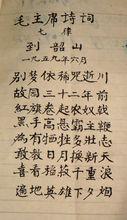 毛主席诗词
七律
到韶山
一九五九年六月
别梦依稀咒逝川
故园三十二年前
红旗卷起农奴戟
黑手高悬霸主鞭
为有牺牲多壮志
敢教日月换新天
喜看稻菽千重浪
遍地英雄下夕烟